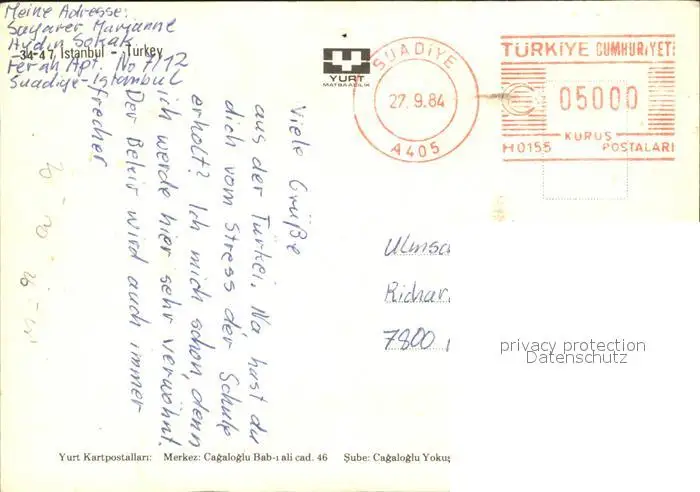 Meine Adresse:
Sayarer Marianne
Aydın Sokak
34-47 Istanbul - Türkey
Ferah Apt. No 7/12
Suadiye-Istanbul
YURT
MATBAACILIK
SUADİYE
27.9.84
A405
TÜRKİYE CUMHURİYETİ
05000
KURUŞ
H0155 POSTALARI
Viele Grüße
aus der Türkei. Na, hast du
dich vom Stress der Schule
erholt? Ich mich schon, denn
ich werde hier sehr verwöhnt.
Der Bekir wird auch immer
frecher
Richar
7800
privacy protection
Datenschutz
Yurt Kartpostalları: Merkez: Cağaloğlu Bab-ı ali cad. 46 Şube: Cağaloğlu Yokuş